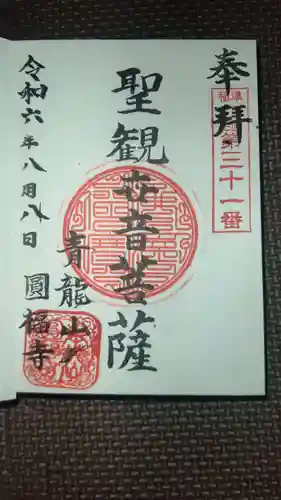 奉拝
第三十一番
聖観世音菩薩
青龍山
圓福寺
令和六年八月八日